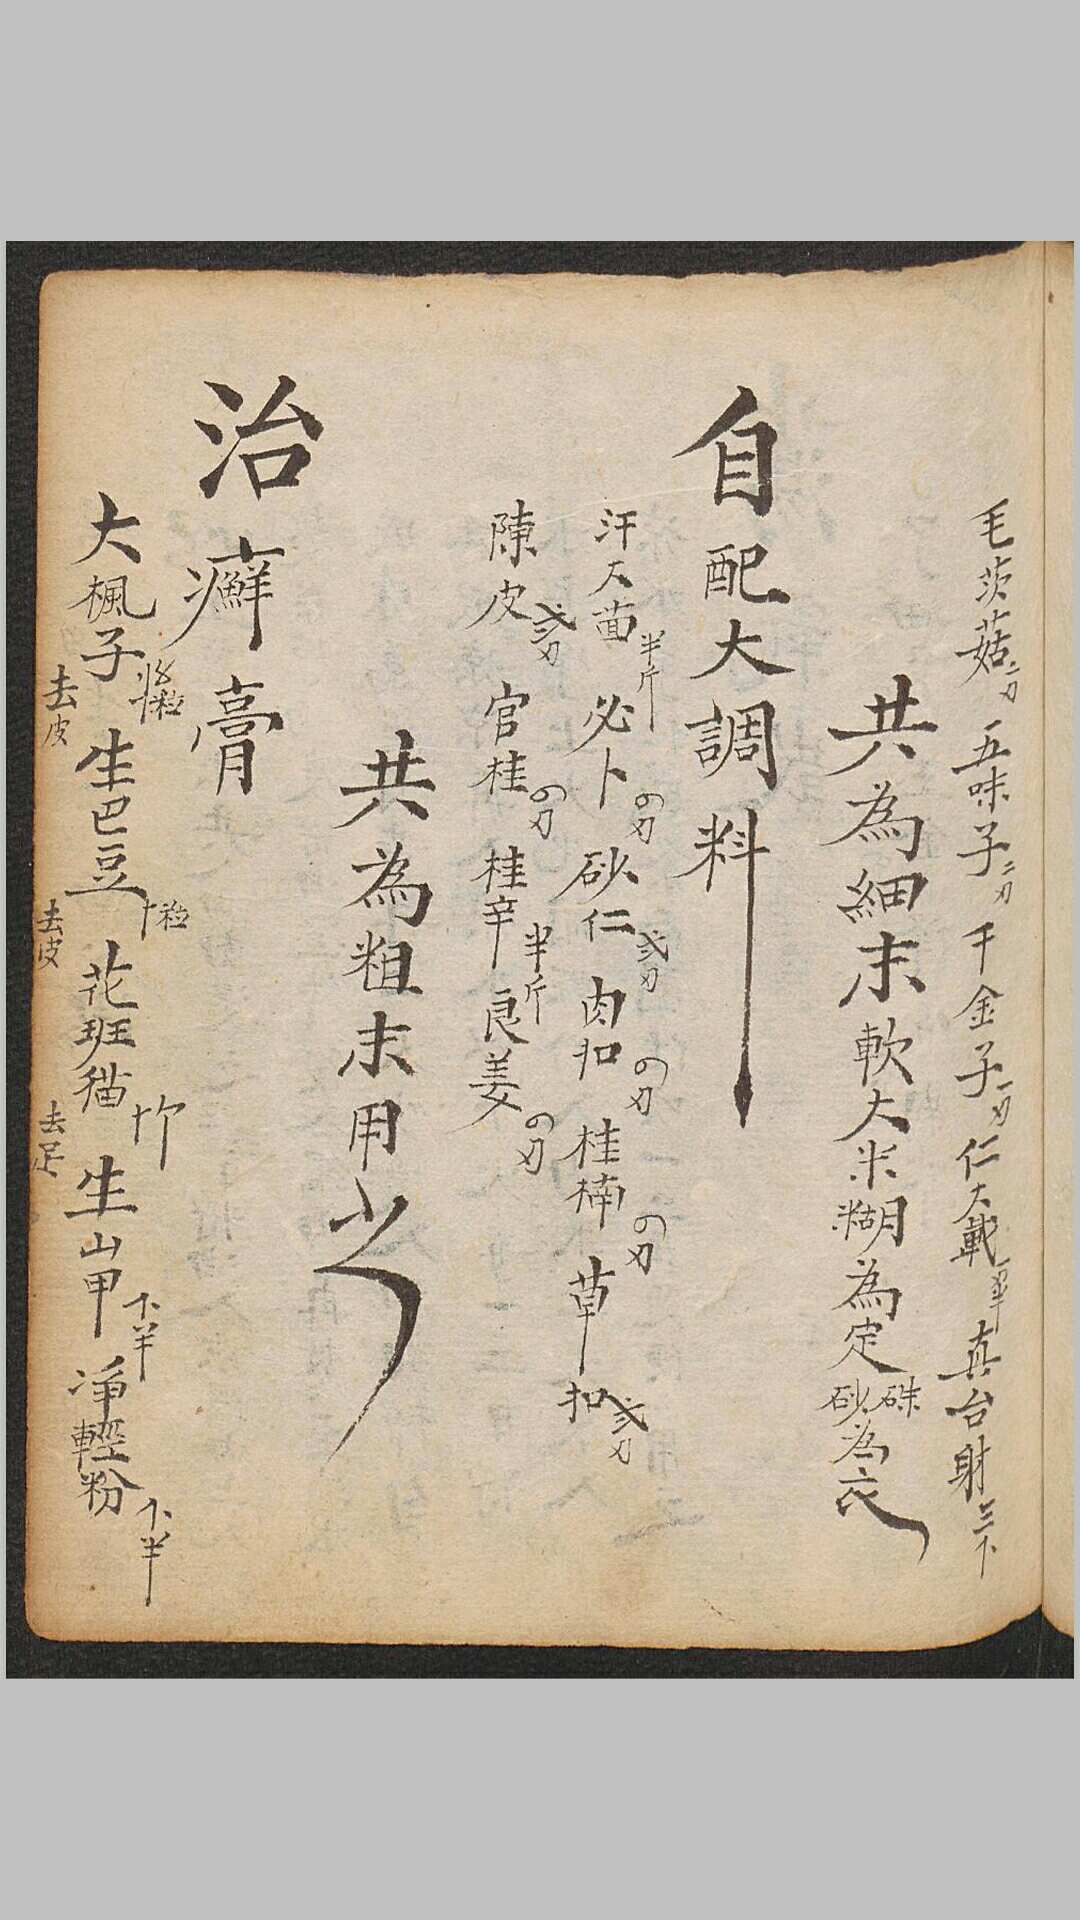 毛茨菇二刃 五味子二刃 千金子一刃 仁大戟 真台射三卜
共為細末軟大米糊為定硃砂為衣
自配大調料
汗大茴半斤 必卜 砂仁弍刃 肉扣 桂楠 草扣弍刃
陳皮弍刃 官桂 桂辛半斤 良姜
共為粗末用之
治癬膏
大楓子粒去皮 生巴豆十粒去皮 花班猫十个去足 生山甲卜半 净輕粉卜半